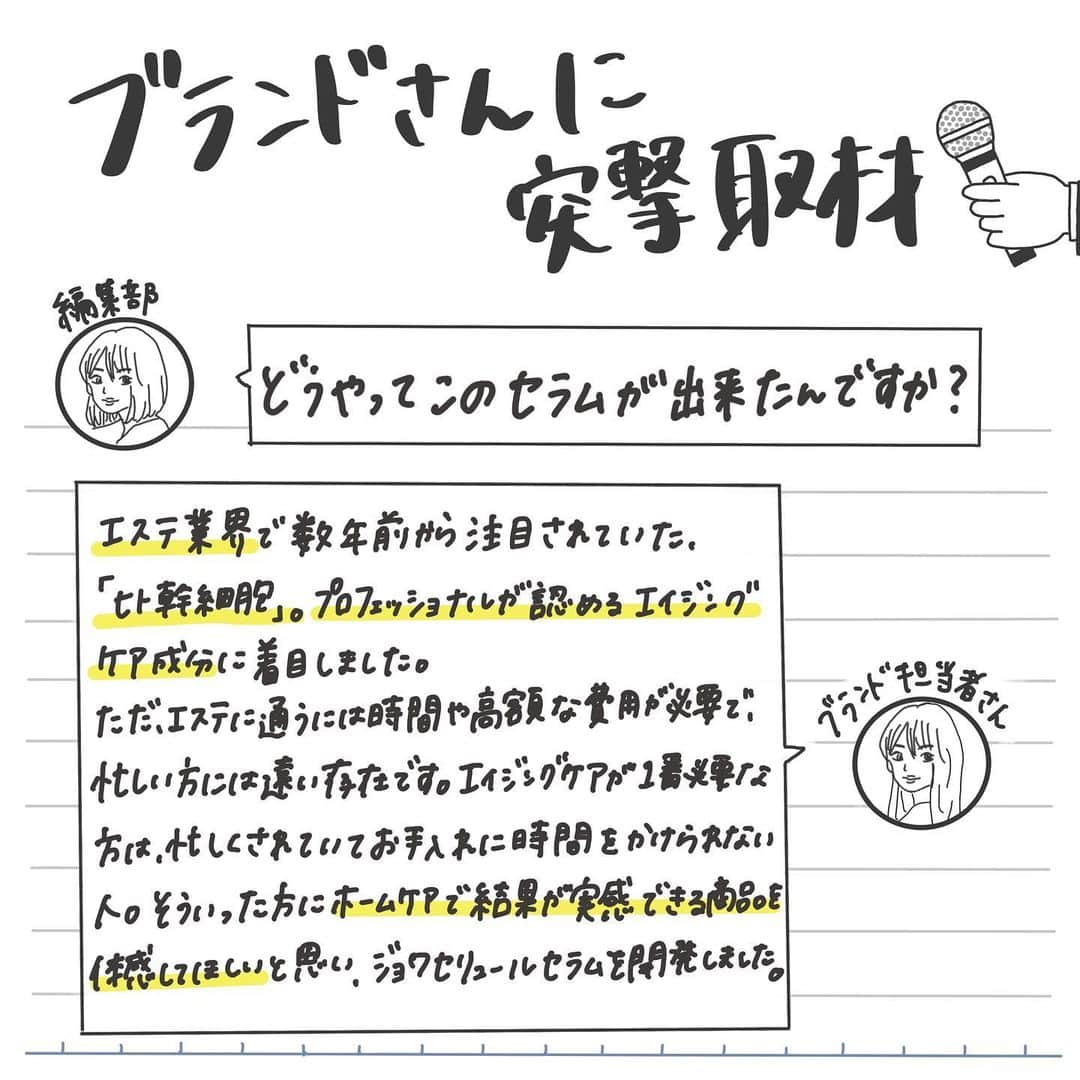 ブランドさんに
突撃取材
編集部
どうやってこのセラムが出来たんですか？
エステ業界で数年前から注目されていた、
「ヒト幹細胞」。プロフェッショナルが認めるエイジング
ケア成分に着目しました。
ただ、エステに通うには時間や高額な費用が必要で、
忙しい方には遠い存在です。エイジングケアが1番必要な
方は、忙しくされていてお手入れに時間をかけられない
人。そういった方にホームケアで結果が実感できる商品を
体感してほしいと思い、ジョワセリュールセラムを開発しました。
ブランド担当者さん